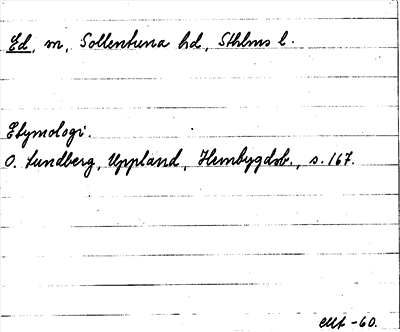 Ed, m, Sollentuna hd, Sthlms l.
Etymologi.
O. Lundberg, Uppland, Hembygdsb., s. 167.
-60.